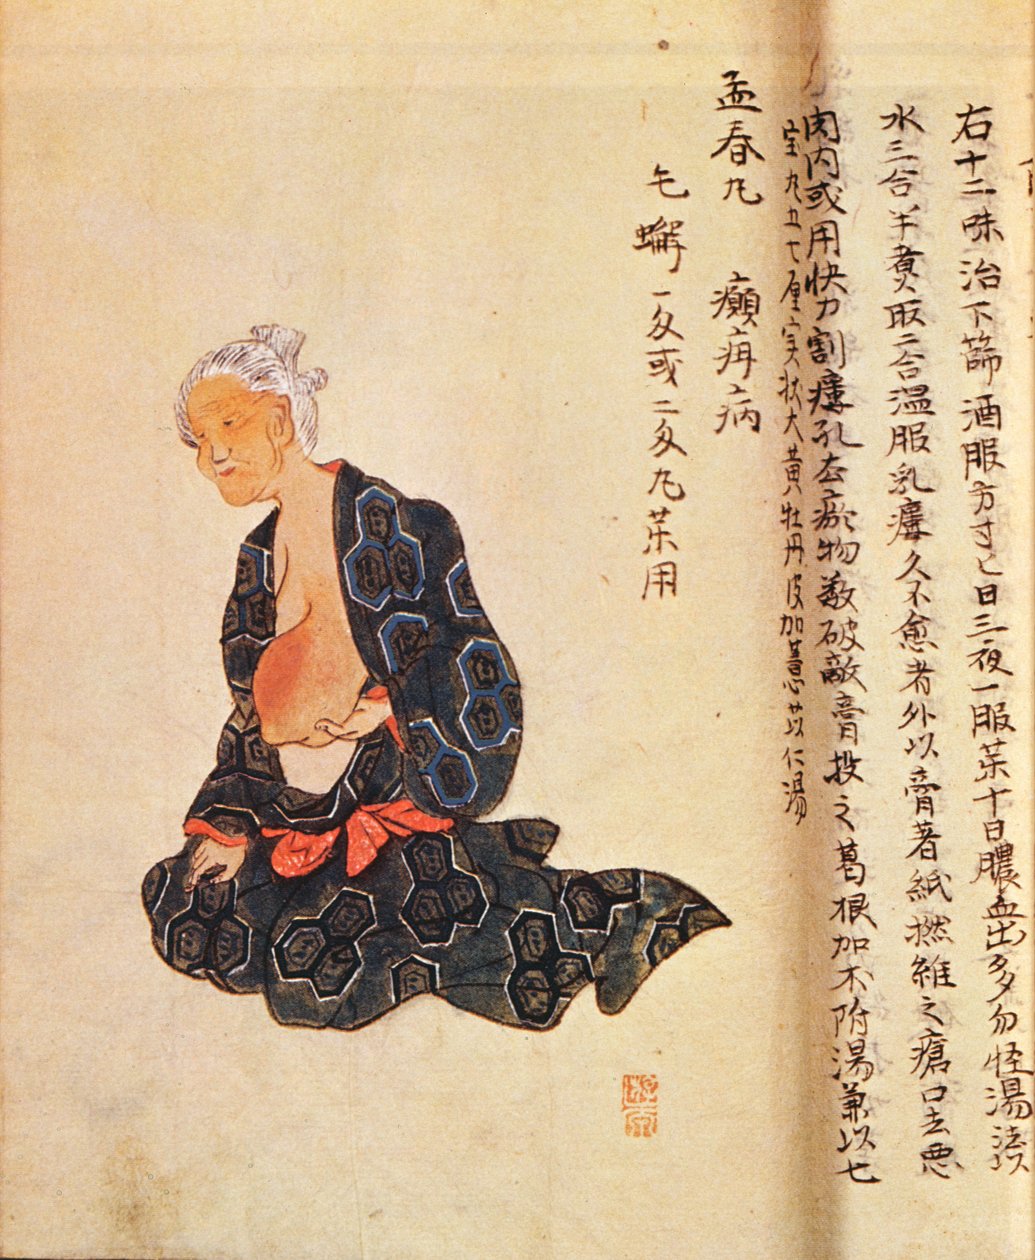 右十二味治下篩酒服方寸匕日三夜一服柒十日膿血出多勿怪湯法以
水三合半煮取二合温服乳癭久不愈者外以膏著紙撚維之瘡口去悪
肉内或用快刀割癭孔去瘀物敷破敵膏投之葛根加朮附湯兼以七
宝丸五七厘実状大黄牡丹皮加薏苡仁湯
孟春丸 癲病
一匁或二匁丸柒用